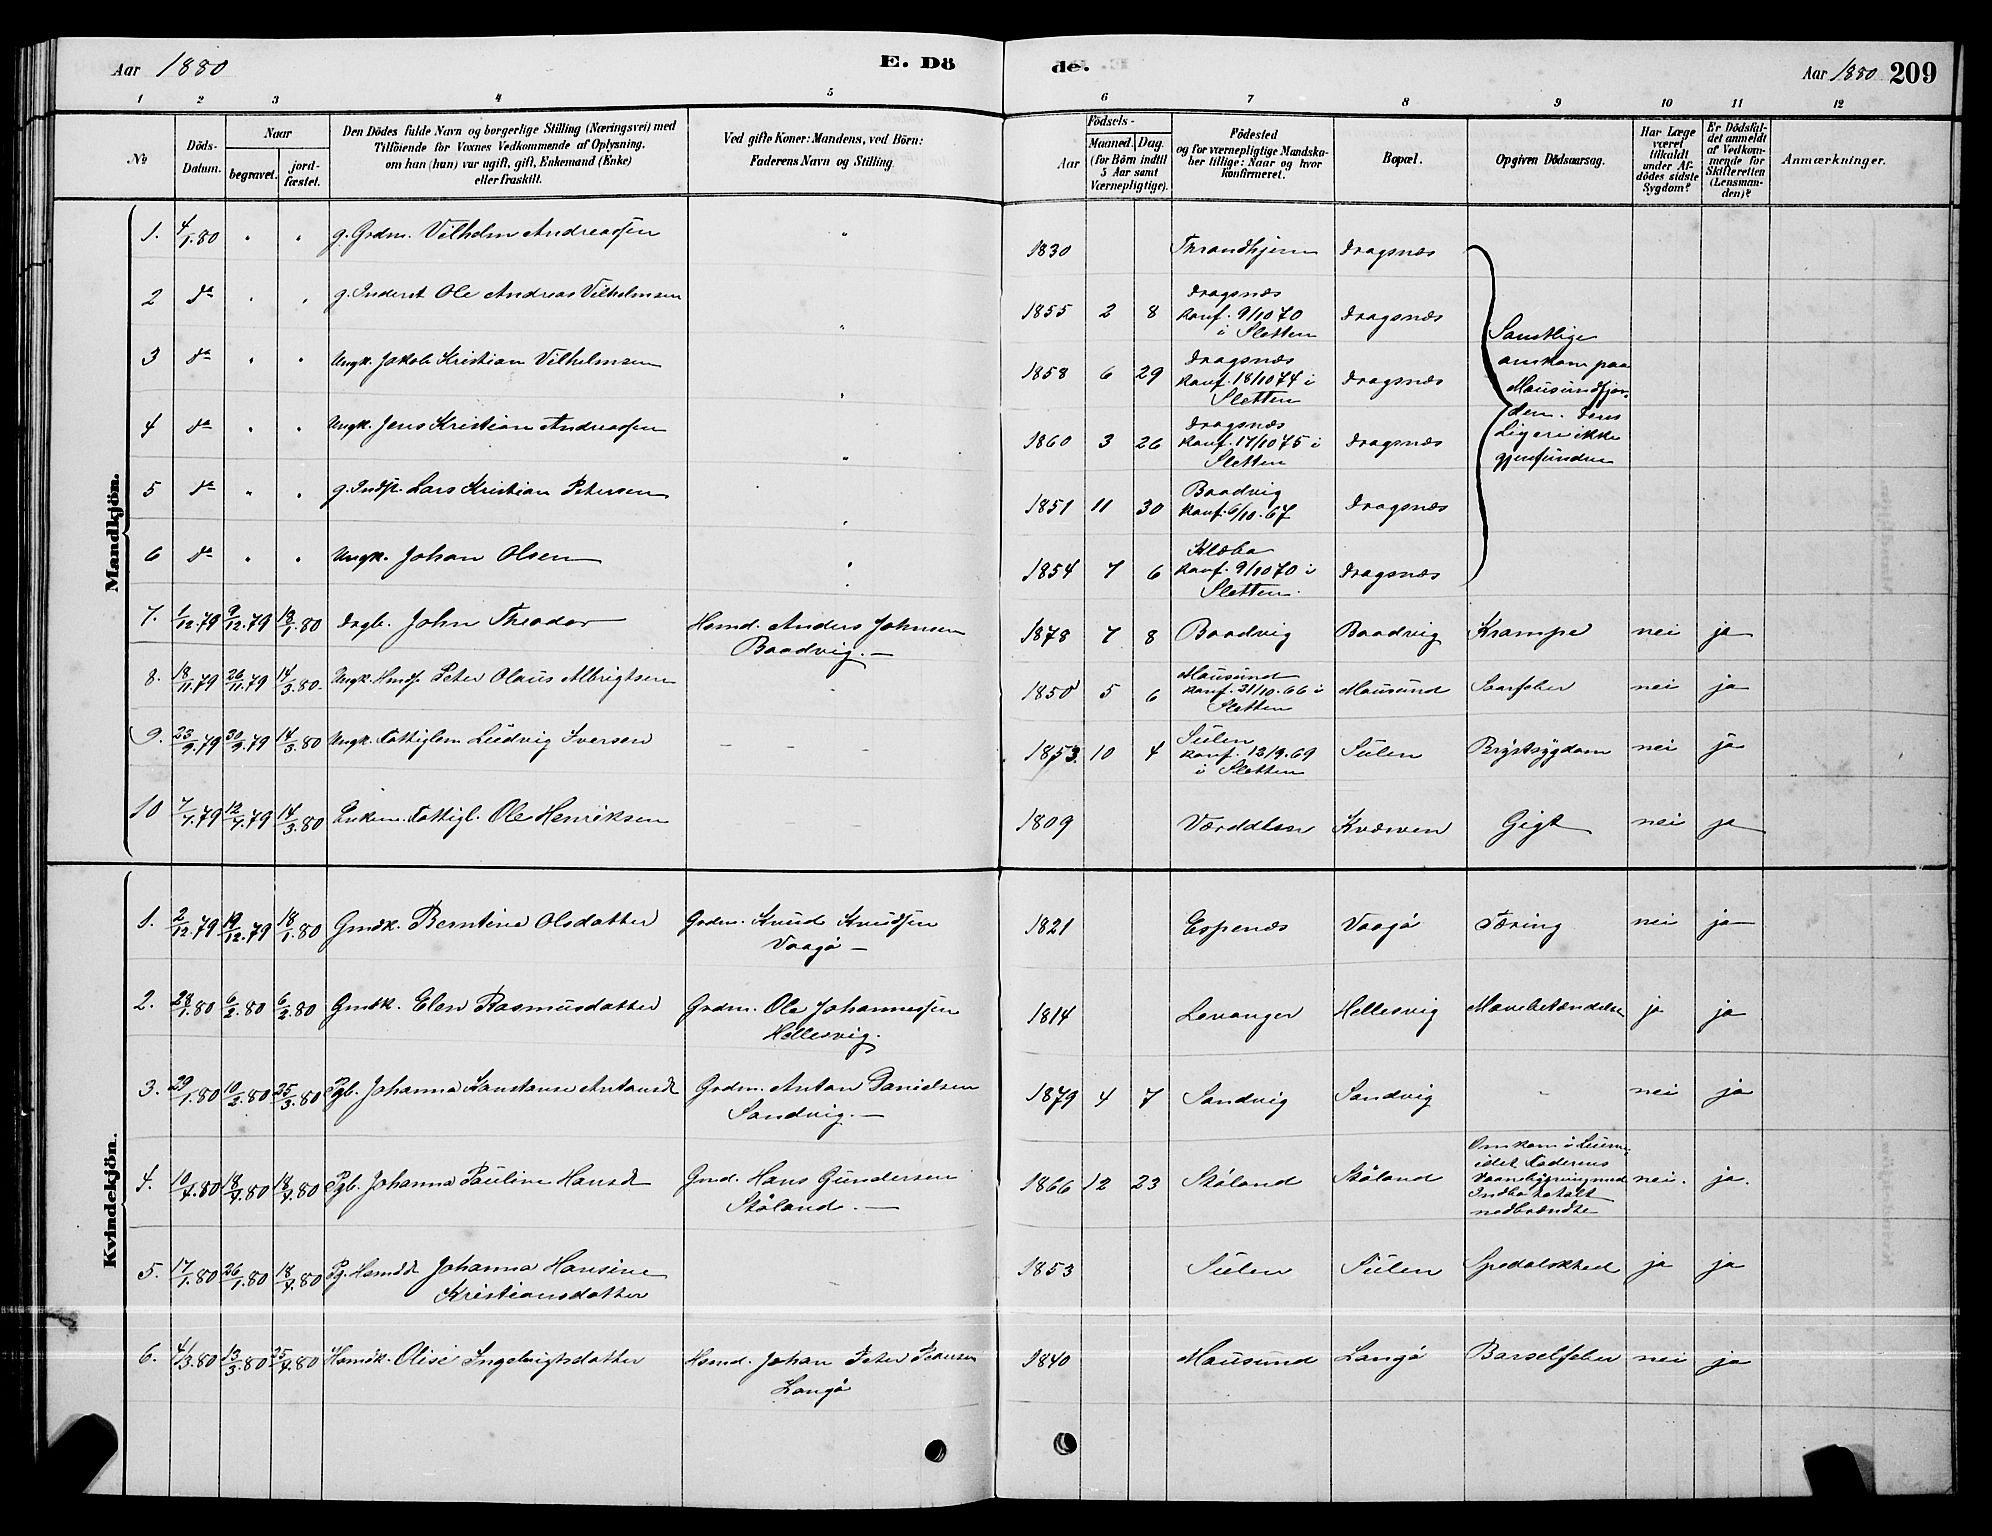 Aar 1880 E. Dö de. Aar 1880 209
1 2 3 4 5 6 7 8 9 10 11 12
No
Döds-Datum.
Naar
begravet.
jordfæstet.
Den Dödes fulde Navn og borgerlige Stilling (Næringsvei) med
Tilföiende for Voxnes Vedkommende af Oplysning,
om han (hun) var ugift, gift, Enkemand (Enke)
eller fraskilt.
Ved gifte Koner: Mandens, ved Börn:
Faderens Navn og Stilling.
Födsels-
Aar
Maaned. Dag.
(for Börn indtil
5 Aar samt
Værnepligtige).
Födested
og for værnepligtige Mandskaber tillige: Naar og hvor
konfirmeret.
Bopæl.
Opgiven Dödsaarsag.
Har Læge
været
tilkaldt
under Afdödes sidste
Sygdom?
Er Dödsfaldet anmeldt
af Vedkommende for
Skifteretten
(Lensmanden)?
Anmærkninger.
Mandkjön.
1. 4/1.80 " " g. Grdm. Vilhelm Andreassen " 1830 Thrandhjem Dragsnæs
2 do " " g. Inderst Ole Andreas Vilhelmsen " 1855 2 8 Dragsnæs konf. 9/10 70 i Sletten Dragsnæs
3 do " " Ungk. Jakob Kristian Vilhelmsen " 1858 6 29 Dragsnæs konf. 18/10 74 i Sletten Dragsnæs
4 do " " Ungk. Jens Kristian Andreassen " 1860 3 26 Dragsnæs konf. 17/10 75 i Sletten Dragsnæs
5 do " " g. Indst. Lars Kristian Petersen " 1851 11 30 Baadvig konf. 6/10.67 Dragsnæs
6 do " " Ungk. Johan Olsen " 1854 7 6 Klæbo konf. 9/10 70 i Sletten. Dragsnæs
Samtlige
omkom paa
Mausundfjorden. Deres
Lig ere ikke
gjenfundne
7. 1/12.79 9/12.79 18/1.80 Drgb. John Theodor Hsmd. Anders Johnsen
Baadvig. — 1878 7 8 Baadvig Baadvig Krampe nei ja
8. 18/11.79 26/11.79 14/3.80. Ungk. Peter Olaus Albrigtsen " 1850 5 6 Mausund konf. 21/10.66 i Sletten Mausund nei ja
9. 23/9.79 30/9.79 14/3.80 Ungk. Fattiglem Ludvig Iversen 1853. 10 4 Sulen konf. 12/9.69 i Sletten Sulen Brystsygdom nei ja
10 7/7.79 12/7.79 14/3.80 Enkem. Fattigl. Ole Henriksen 1809 Kværven Gigt nei ja
Kvindekjön.
1. 2/12.79 19/12.79 18/1.80 Gmdk. Berntine Olsdatter Grdm. Knud Knudsen
Vaagö — 1821 Espenæs Vaagö Tæring nei ja
2. 28/1.80 6/2.80 6/2.80 Gmdk. Elen Rasmusdatter Grdm. Ole Johannessen
Hellesvig. 1814 Levanger Hellesvig Mavebetændelse ja ja
3. 29/1.80 10/2.80 25/3.80 Pgb. Johanna Konstanse Antonsd. Grdm. Anton Danielsen
Sandvig. — 1879 4 7 Sandvig Sandvig " nei ja
4. 10/4.80 18/4.80 18/4.80 Pgb. Johanna Pauline Hansd Gmd. Hans Gundersen
Stöland. — 1866 12 23 Stöland Stöland Omkom i Luerne
idet Faderens
Vaanebygning med
Indbo totalt
nedbrændte nei. ja.
5. 17/1.80 26/1.80 18/4.80 Pg. Hsmdd Johanna Hansine
Kristiansdatter 1853 Sulen Sulen Spedalskhed ja ja
6. 4/3.80 13/3.80 25/4.80 Hsmdk. Olise Ingebrigtsdatter Hsmd. Johan Peter Pedersen
Langö 1840 Mausund Langö Barselfeber nei ja